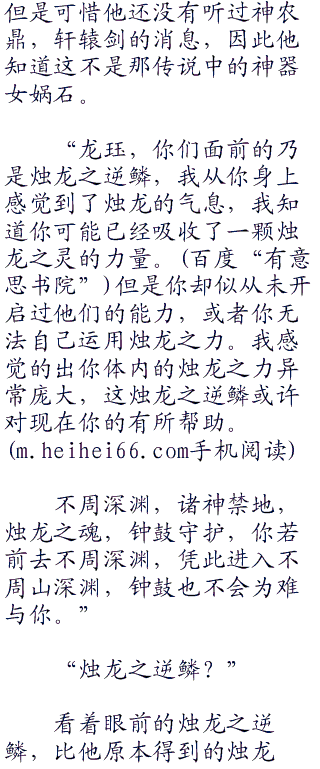 但是可惜他还没有听过神农
鼎，轩辕剑的消息，因此他
知道这不是那传说中的神器
女娲石。
“龙珏，你们面前的乃
是烛龙之逆鳞，我从你身上
感觉到了烛龙的气息，我知
道你可能已经吸收了一颗烛
龙之灵的力量。(百度“有意
思书院”)但是你却似从未开
启过他们的能力，或者你无
法自己运用烛龙之力。我感
觉的出你体内的烛龙之力异
常庞大，这烛龙之逆鳞或许
对现在你的有所帮助。
(m.heihei66.com手机阅读)
不周深渊，诸神禁地，
烛龙之魂，钟鼓守护，你若
前去不周深渊，凭此进入不
周山深渊，钟鼓也不会为难
与你。”
“烛龙之逆鳞？”
看着眼前的烛龙之逆
鳞，比他原本得到的烛龙